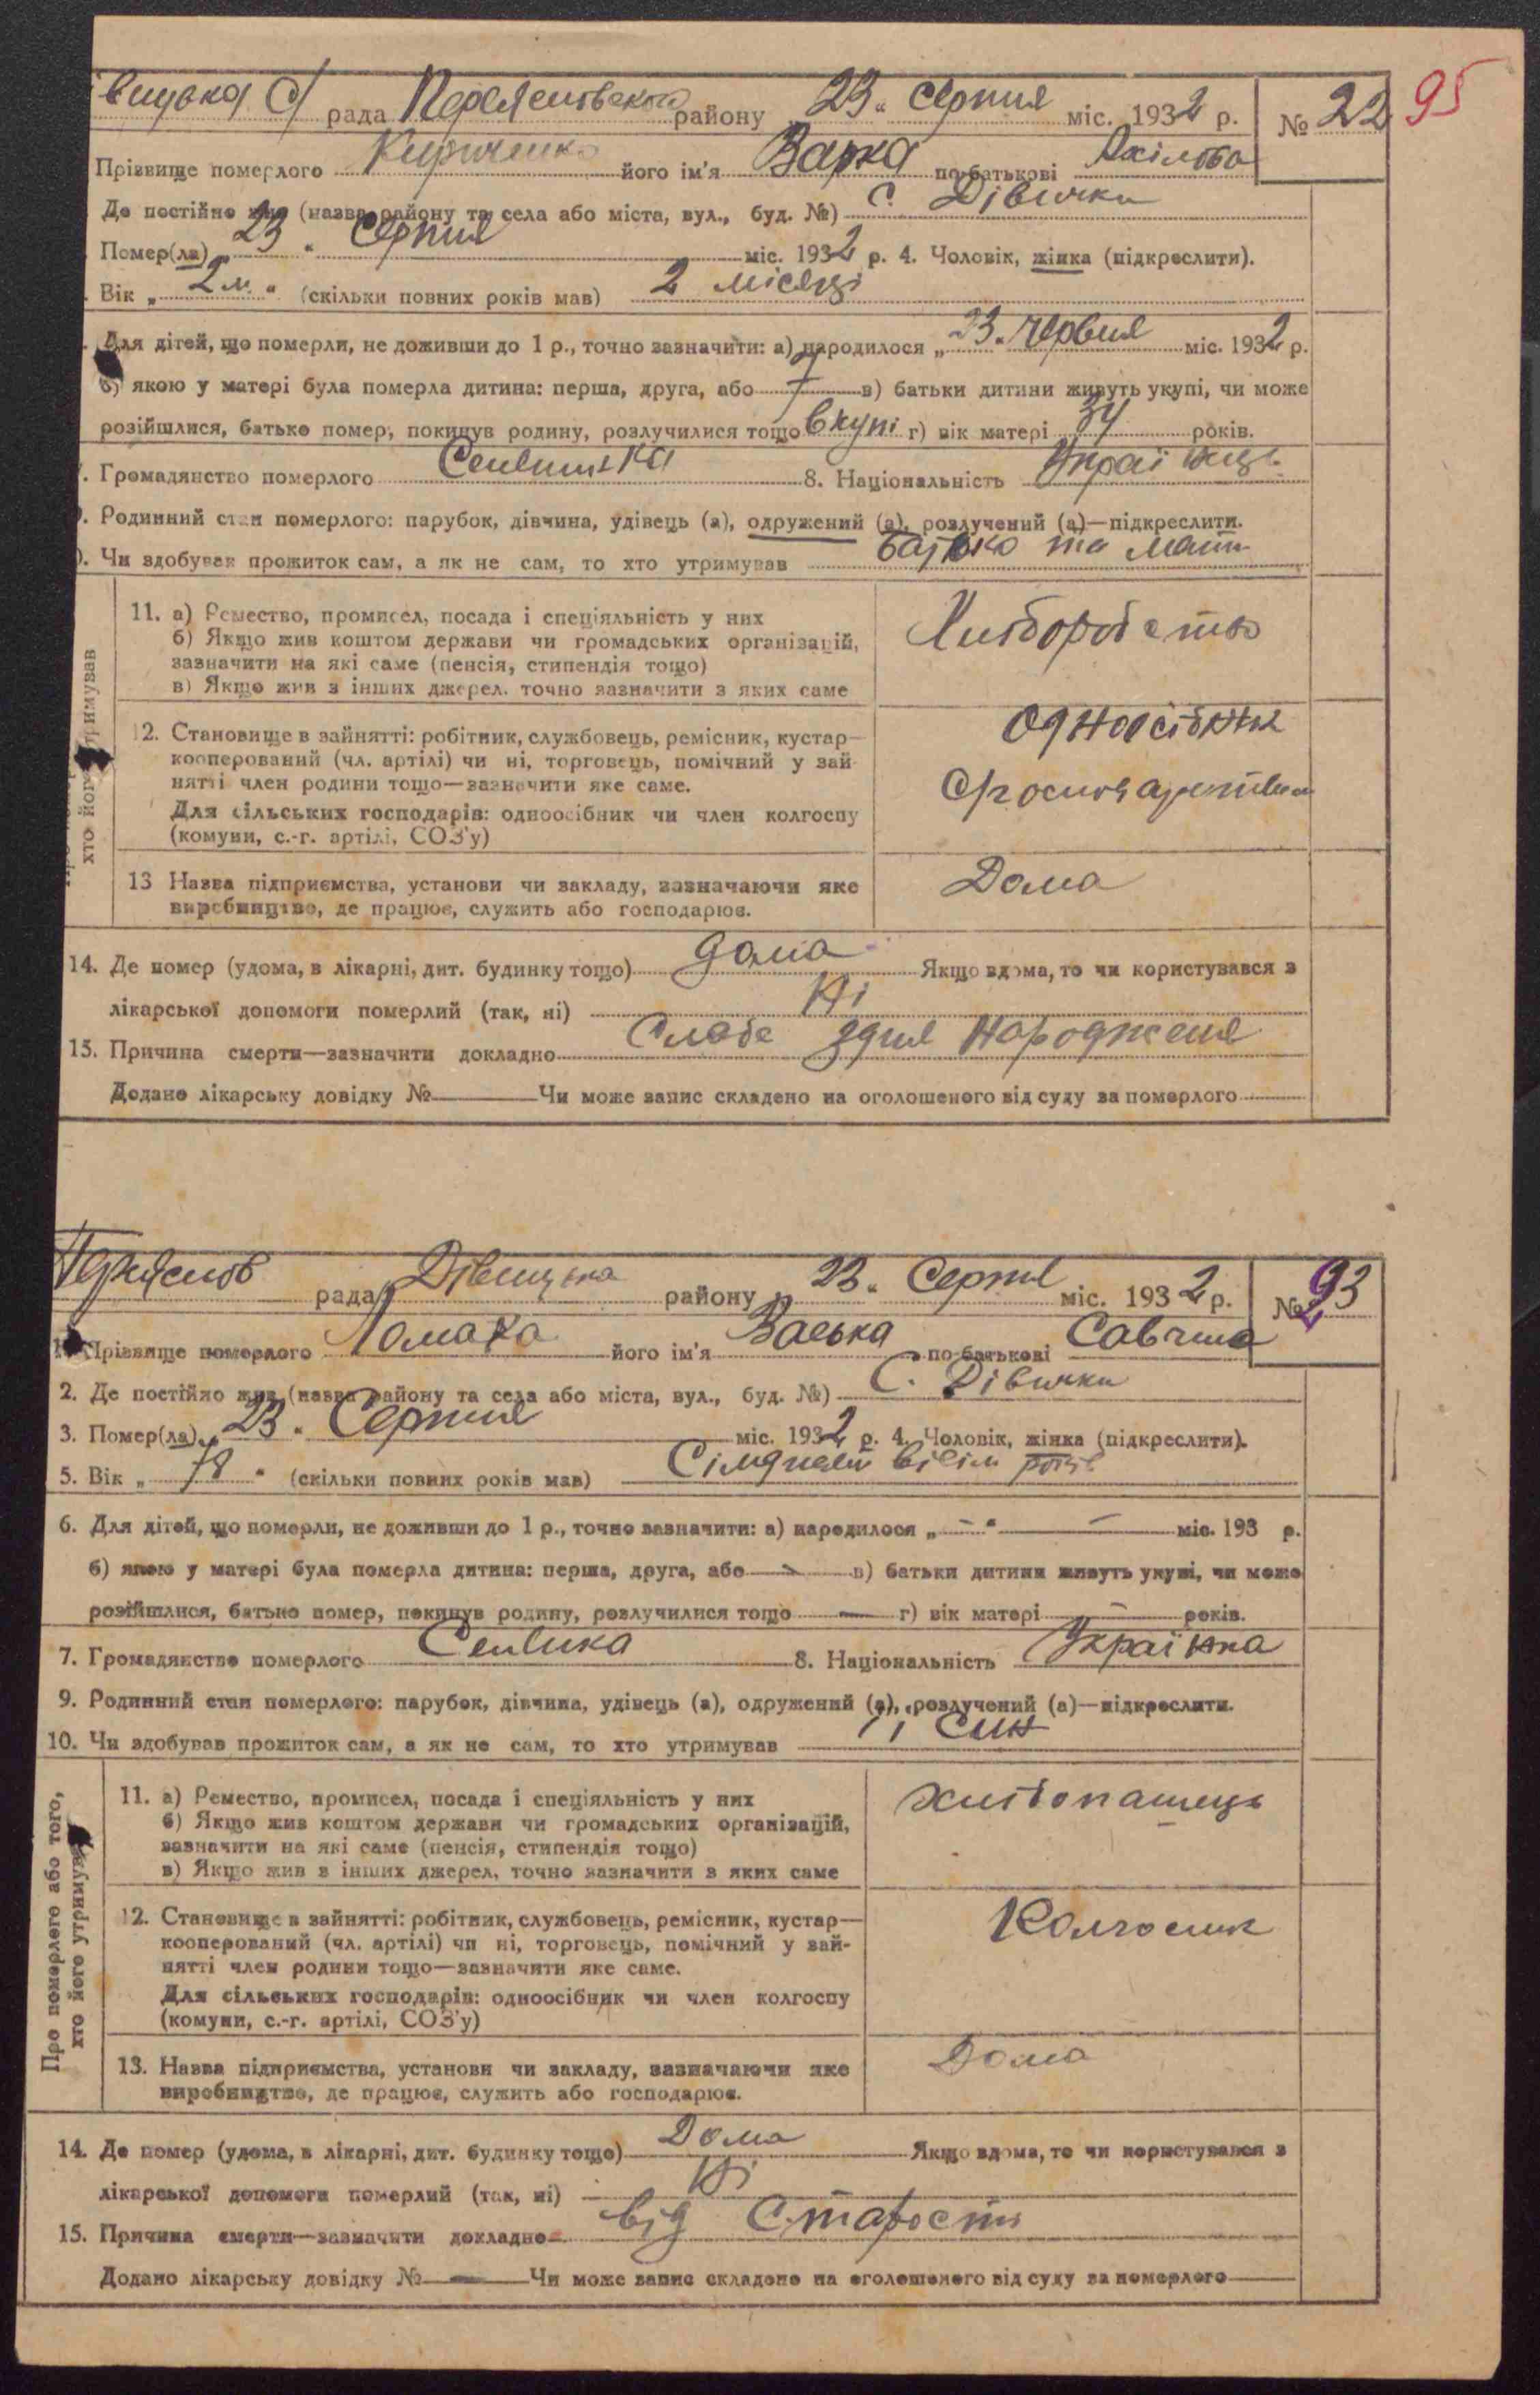 вицька С/ рада Переяславського району „23“ Серпня міс. 1932 р. № 22 95
Прізвище померлого Кириченко його ім'я Варка по-батькові
Де постійно жив (назва району та села або міста, вул., буд. №) с. Дівички
Помер(ла) „23“ Серпня міс. 1932 р. 4. Чоловік, жінка (підкреслити).
. Вік „2 м.“ (скільки повних років мав) 2 місяці
Для дітей, що померли, не доживши до 1 р., точно зазначити: а) народилося „23“ червня міс. 1932 р.
б) якою у матері була померла дитина: перша, друга, або 7 в) батьки дитини живуть укупі, чи може
розійшлися, батько помер, покинув родину, розлучилися тощо вкупі г) вік матері 34 років.
. Громадянство померлого Селянка 8. Національність
. Родинний стан померлого: парубок, дівчина, удівець (а), одружений (а), розлучений (а)—підкреслити.
). Чи здобував прожиток сам, а як не сам, то хто утримував батько та мати
хто його утримував
11. а) Ремество, промисел, посада і спеціяльність у них
б) Якщо жив коштом держави чи громадських організацій,
зазначити на які саме (пенсія, стипендія тощо)
в) Якщо жив з інших джерел, точно зазначити з яких саме
Хліборобство
12. Становище в зайнятті: робітник, службовець, ремісник, кустар—
кооперований (чл. артілі) чи ні, торговець, помічний у зай-
нятті член родини тощо—зазначити яке саме.
Для сільських господарів: одноосібник чи член колгоспу
(комуни, с.-г. артілі, СОЗ'у)
Одноосібник
13 Назва підприємства, установи чи закладу, зазначаючи яке
виробництво, де працює, служить або господарює.
Дома
14. Де помер (удома, в лікарні, дит. будинку тощо) дома Якщо вдома, то чи користувався з
лікарської допомоги померлий (так, ні) Ні
15. Причина смерти—зазначити докладно Слабе здня Народженя
Додано лікарську довідку № Чи може запис складено на оголошеного від суду за померлого
Переяслов рада Дівицька району „23“ Серпня міс. 1932 р. № 23
1. Прізвище померлого Ломака його ім'я Васька по-батькові Савична
2. Де постійно жив (назва району та села або міста, вул., буд. №) С. Дівички
3. Помер(ла) „23“ Серпня міс. 1932 р. 4. Чоловік, жінка (підкреслити).
5. Вік „78“ (скільки повних років мав) Сімдесят вісім років
6. Для дітей, що померли, не доживши до 1 р., точно зазначити: а) народилося „—“ — міс. 193 р.
б) якою у матері була померла дитина: перша, друга, або — в) батьки дитини живуть укупі, чи може
розійшлися, батько помер, покинув родину, розлучилися тощо — г) вік матері — років.
7. Громадянство померлого Селянка 8. Національність Українка
9. Родинний стан померлого: парубок, дівчина, удівець (а), одружений (а), розлучений (а)—підкреслити.
10. Чи здобував прожиток сам, а як не сам, то хто утримував її син
Про померлого або того,
хто його утримував
11. а) Ремество, промисел, посада і спеціяльність у них
б) Якщо жив коштом держави чи громадських організацій,
зазначити на які саме (пенсія, стипендія тощо)
в) Якщо жив з інших джерел, точно зазначити з яких саме
12. Становище в зайнятті: робітник, службовець, ремісник, кустар—
кооперований (чл. артілі) чи ні, торговець, помічний у зай-
нятті член родини тощо—зазначити яке саме.
Для сільських господарів: одноосібник чи член колгоспу
(комуни, с.-г. артілі, СОЗ'у)
Колгоспник
13. Назва підприємства, установи чи закладу, зазначаючи яке
виробництво, де працює, служить або господарює.
Дома
14. Де помер (удома, в лікарні, дит. будинку тощо) Дома Якщо вдома, то чи користувався з
лікарської допомоги померлий (так, ні) Ні
15. Причина смерти—зазначити докладно від Старости
Додано лікарську довідку № — Чи може запис складено на оголошеного від суду за померлого